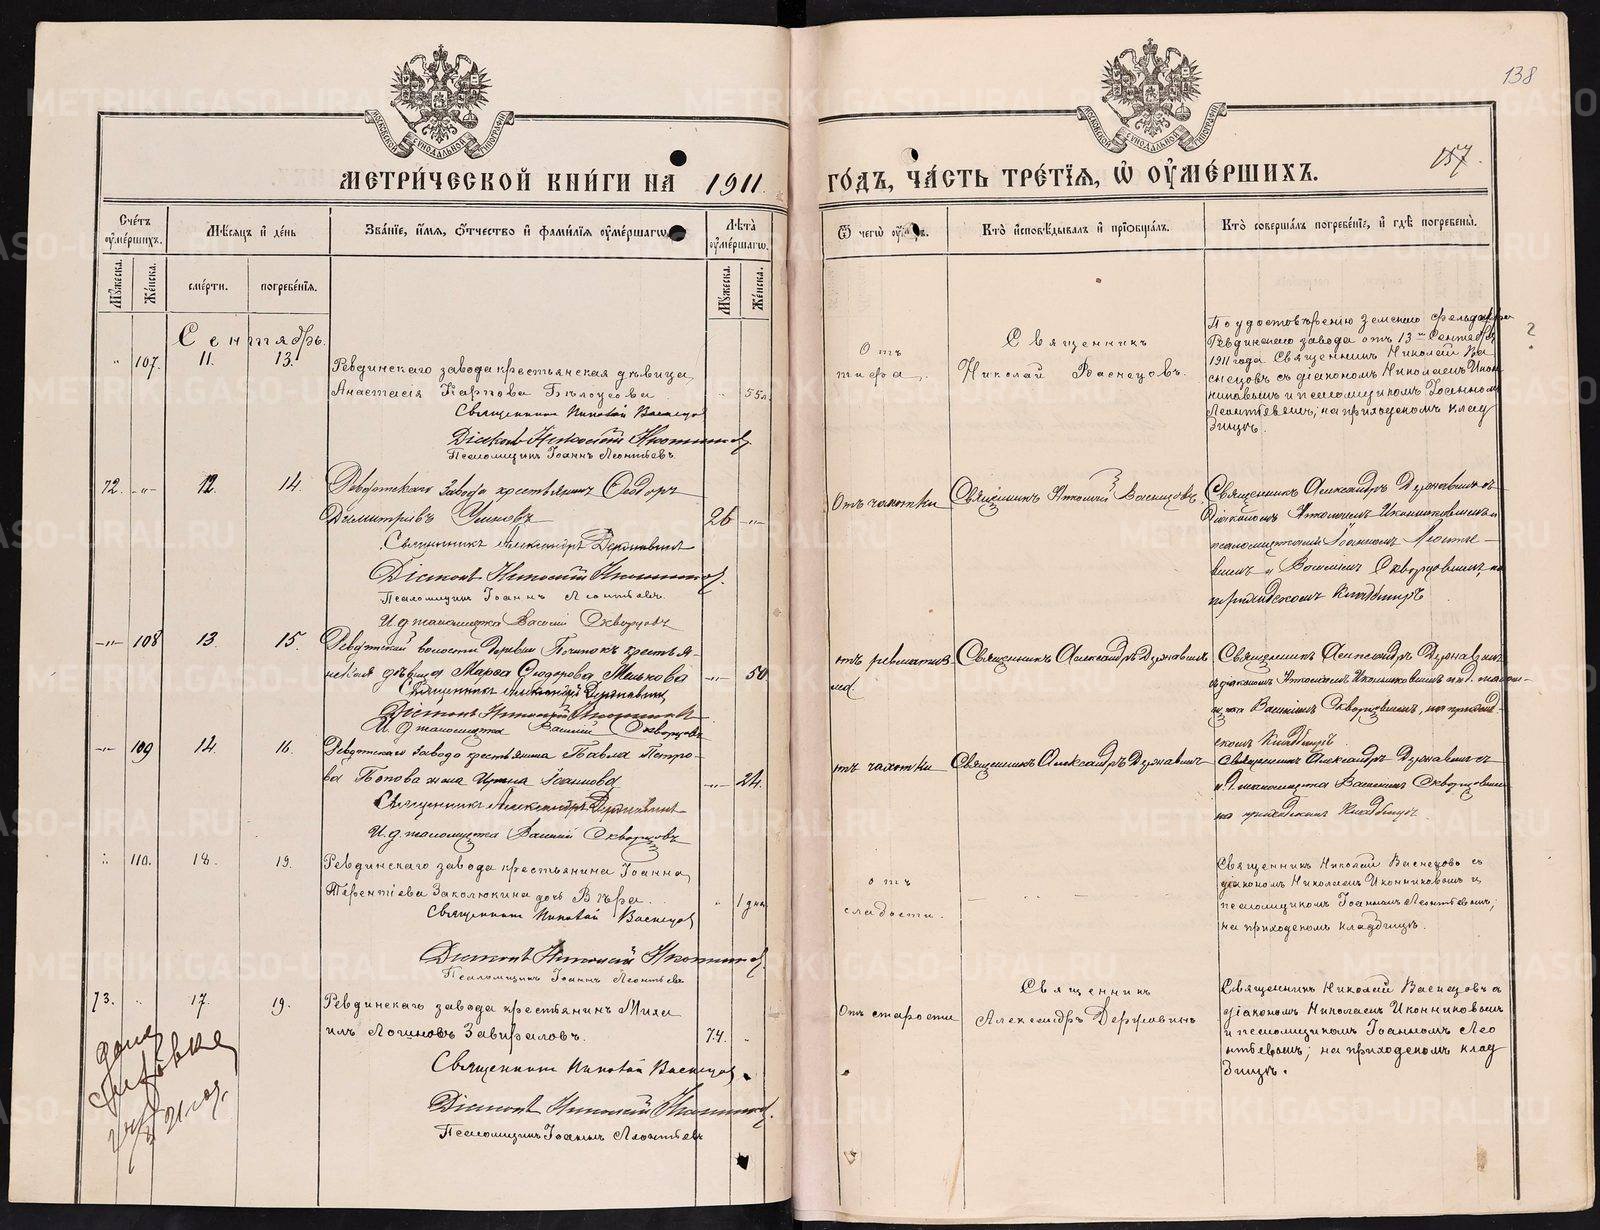 МОСКОВСКОЙ СѴНОДАЛЬНОЙ ТИПОГРАФІИ
МЕТРИ́ЧЕСКОЙ КНИ́ГИ НА 1911
Сче́тъ ᲂу҆ме́ршихъ.
Мѣ́сяцъ и҆ де́нь
Зва́нїе, и҆́мя, ѻ҆́тчество и҆ фами́лїя ᲂу҆ме́ршагѡ
Лѣ́та ᲂу҆ме́ршагѡ.
Мꙋ́жеска.
Же́нска.
сме́рти.
погребе́нїя.
Мꙋ́жеска.
Же́нска.
Сентябрь.
107. 11. 13.
Ревдинскаго завода крестьянская дѣвица
Анастасія Карпова Бѣлоусова 55 л.
Священникъ Николай Васнецов
Діаконъ Николай Иконников
Псаломщикъ Іоаннъ Леонтьевъ.
72. -"- 12. 14.
Ревдинскаго завода крестьянинъ Ѳеодоръ
Димитріевъ 26 -"-
Священникъ Александръ Державинъ
Діаконъ Николай Иконников.
Псаломщикъ Іоаннъ Леонтьевъ.
И. д. псаломщика Василій Скворцовъ
-"- 108 13. 15.
Ревдинской волости деревни крестья-
нская дѣвица Марѳа 50
Священникъ Александръ Державинъ
Діаконъ Николай Иконников
И. д. псаломщика Василій Скворцовъ
-"- 109 14. 16.
Ревдинскаго завода крестьянина Павла Петро-
ва Попова жена Ирина Іоаннова -"- 24.
Священникъ Александръ Державинъ
И. д. псаломщика Василій Скворцовъ
110. 18. 19.
Ревдинскаго завода крестьянина Іоанна
Терентіева Заколюкина дочь Вѣра. 1 дня
Священникъ Николай Васнецов
Діаконъ Николай Иконников.
Псаломщикъ Іоаннъ Леонтьевъ
73. " 17. 19.
Ревдинскаго завода крестьянинъ Миха
илъ Логиновъ Завьяловъ. 74. "
Священникъ Николай Васнецов
Діаконъ Николай Иконников.
Псаломщикъ Іоаннъ Леонтьевъ
дана
справка
21 год.
138
157.
МОСКОВСКОЙ СѴНОДАЛЬНОЙ ТИПОГРАФІИ
ГО́ДЪ, ЧА́СТЬ ТРЕ́ТЇЯ, Ѡ҆ ОУ҆МЕ́РШИХЪ.
Ѿ чегѡ̀ ᲂу҆́мръ.
Кто̀ и҆сповѣ́дывалъ и҆ прїѡбща́лъ.
Кто̀ соверша́лъ погребе́нїе, и҆ гдѣ̀ погребены̀.
Отъ
тифа.
Священникъ
Николай Васнецовъ.
По удостовѣренію земскаго фельдшера
Ревдинскаго завода отъ 13 Сентября
1911 года Священникъ Николай Ва
снецовъ съ діакономъ Николаемъ Икон
никовымъ и псаломщикомъ Іоанномъ
Леонтьевымъ; на приходскомъ клад
бищѣ.
?
Отъ чахотки
Священникъ Николай Васнецовъ
Священникъ Александръ Державинъ съ
Діакономъ Николаемъ Иконниковымъ и
псаломщиками Іоанномъ Леонтье-
вымъ и Василіемъ Скворцовымъ, на
приходскомъ кладбищѣ
отъ ревматиз
ма.
Священникъ Александръ Державинъ
Священникъ Александръ Державинъ
съ діакономъ Николаемъ Иконниковымъ и и.д. псалом-
щика Василіемъ Скворцовымъ, на приход-
скомъ кладбищѣ
отъ чахотки
Священникъ Александръ Державинъ
Священникъ Александръ Державинъ съ
и. д. псаломщика Василіемъ Скворцовымъ
на приходскомъ кладбищѣ.
отъ
слабости.
Священникъ Николай Васнецовъ съ
діакономъ Николаемъ Иконниковымъ и
псаломщикомъ Іоанномъ Леонтьевымъ;
на приходскомъ кладбищѣ.
Отъ старости
Священникъ
Александръ Державинъ
Священникъ Николай Васнецовъ съ
діакономъ Николаемъ Иконниковымъ
и псаломщикомъ Іоанномъ Лео
нтьевымъ; на приходскомъ клад
бищѣ.
METRIKI.GASO-URAL.RU